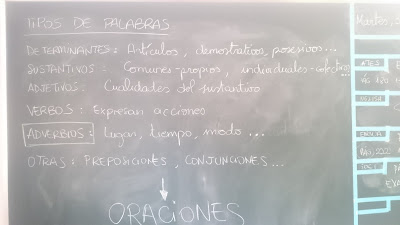 TIPOS DE PALABRAS
DETERMINANTES: Artículos, demostrativos, posesivos...
SUSTANTIVOS: Comunes-propios, individuales-colectivos...
ADJETIVOS: Cualidades del sustantivo
VERBOS: Expresan acciones
ADVERBIOS: lugar, tiempo, modo...
OTRAS: PREPOSICIONES, CONJUNCIONES...
ORACIONES
Martes,